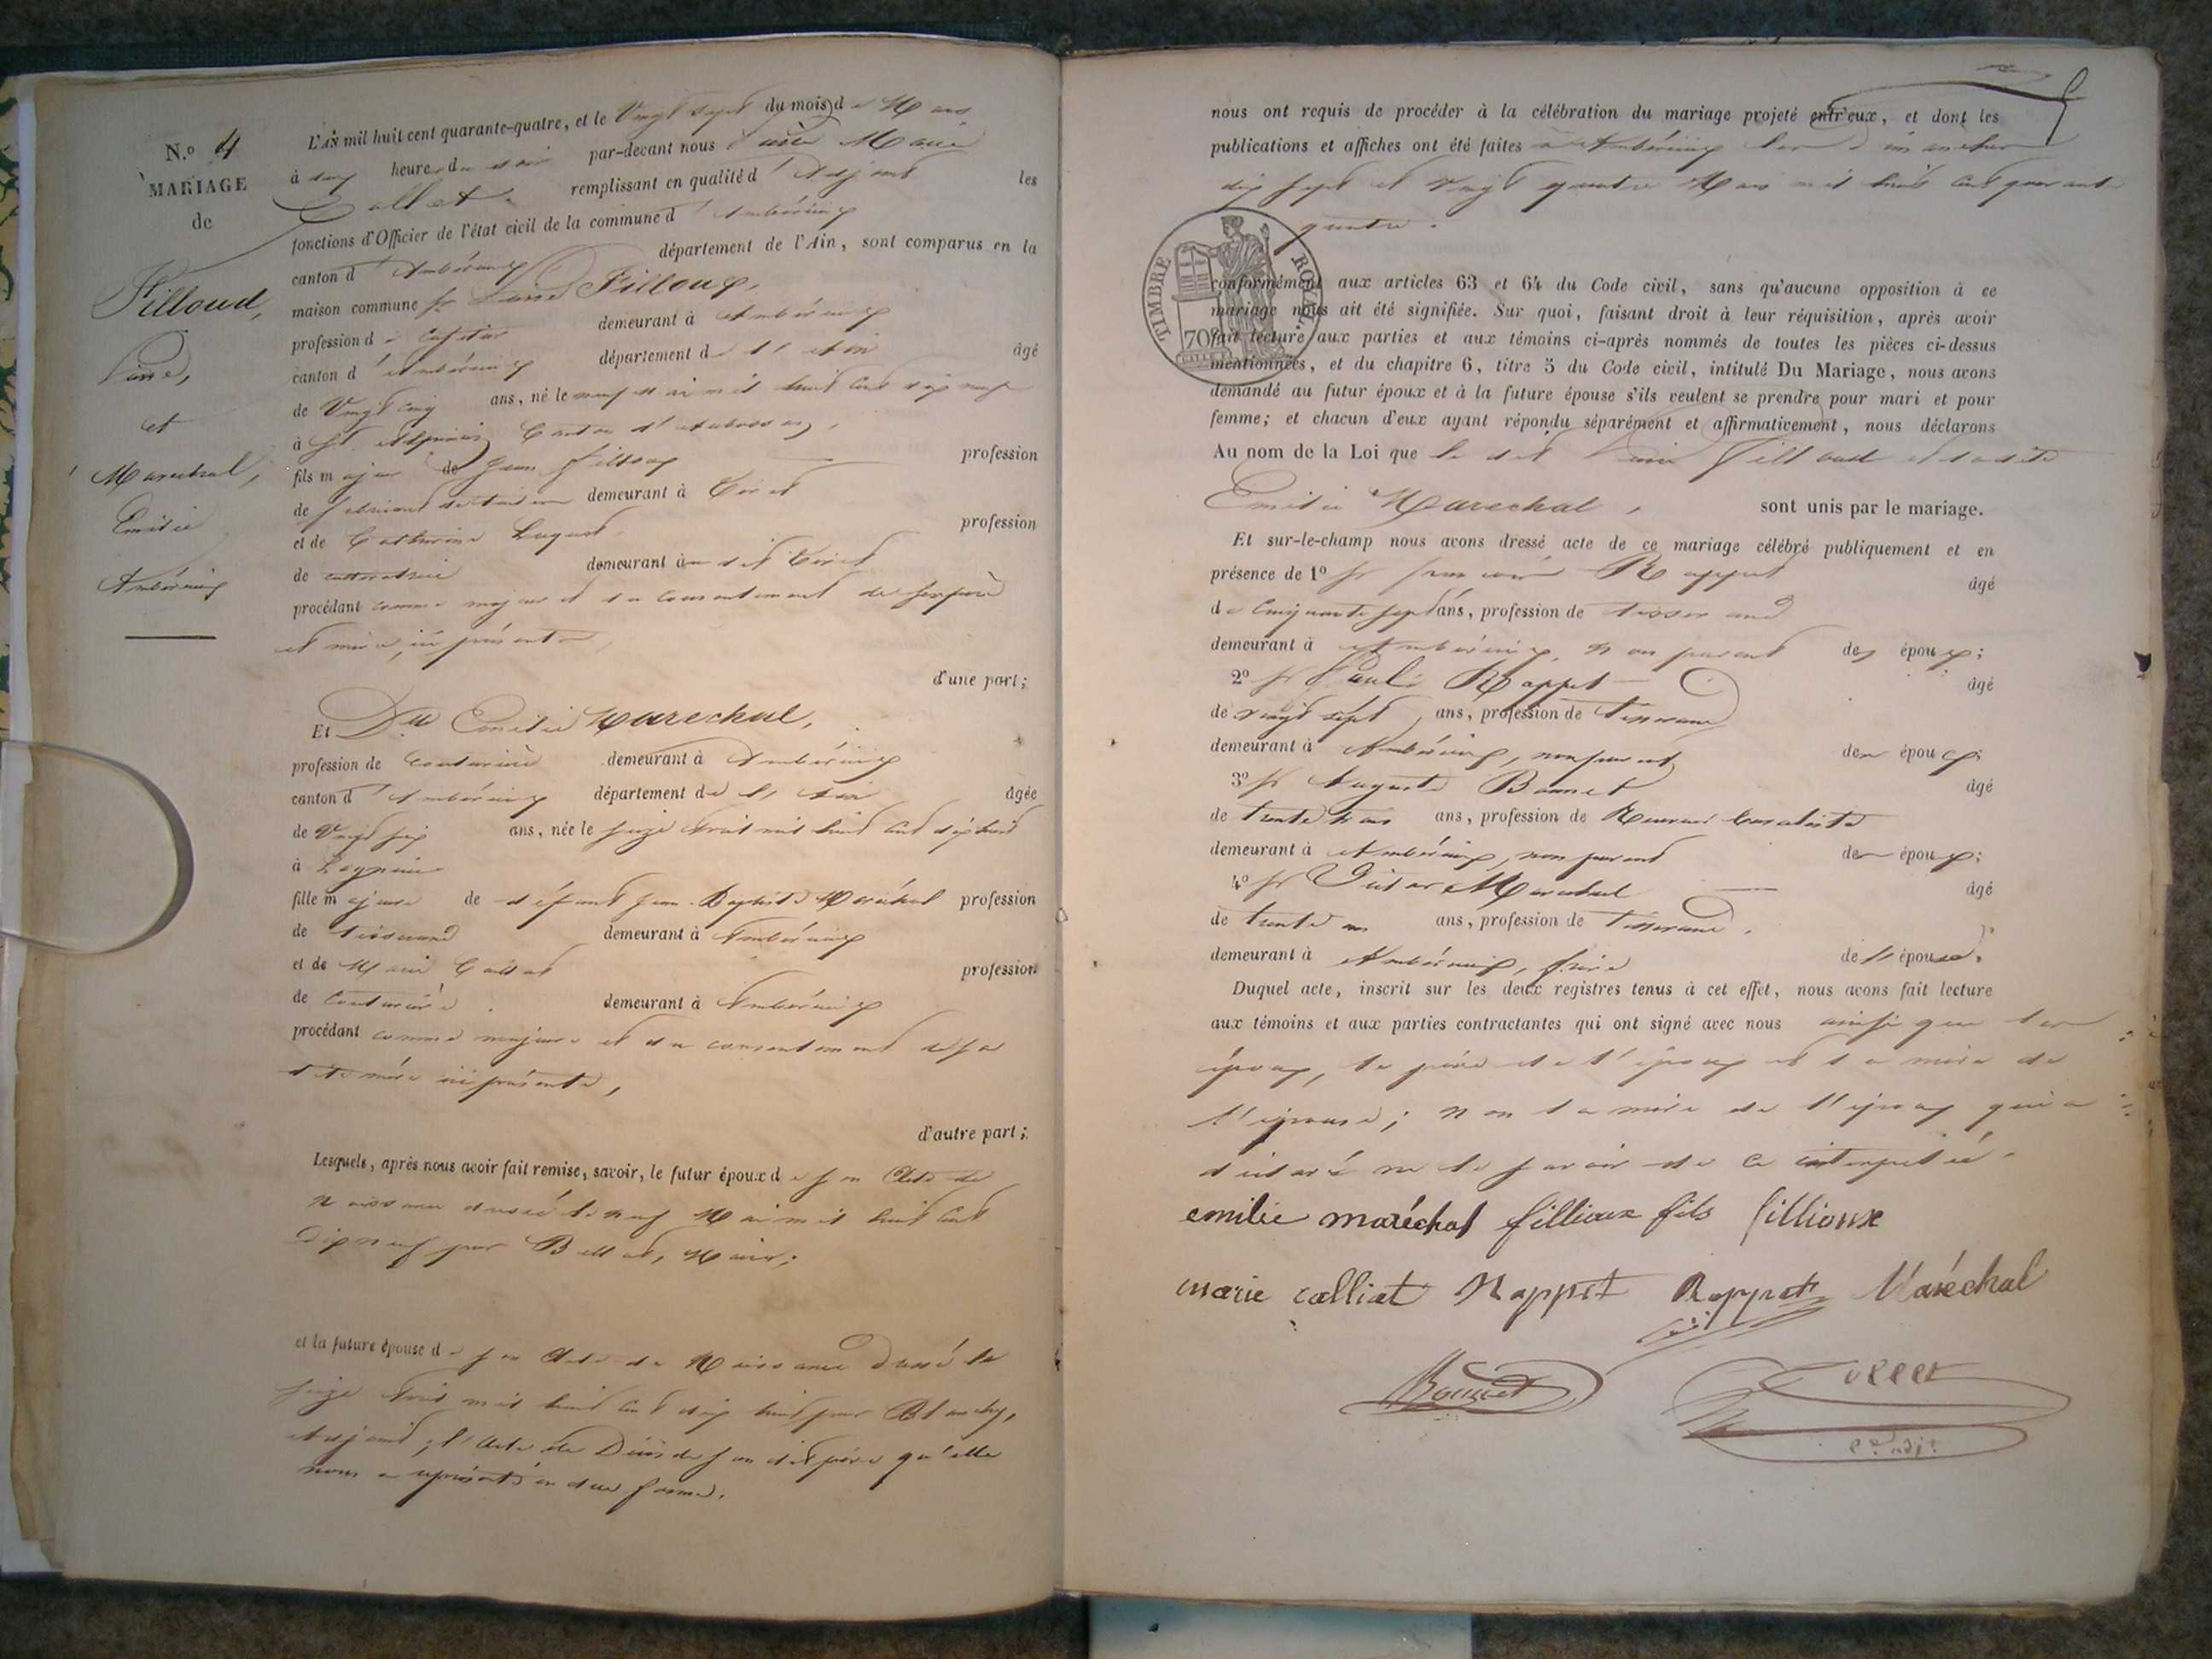 N.º 4
MARIAGE
de
Filloud,
Pierre,
et
Marechal,
Emilie
Ambérieux
L'AN mil huit cent quarante-quatre, et le Vingt sept du mois de Mars
à heure du soir par-devant nous Marie
Collet remplissant en qualité d'adjoint les
fonctions d'Officier de l'état civil de la commune d'Ambérieux
canton d'Ambérieux département de l'Ain, sont comparus en la
maison commune Sr Pierre Filloux,
profession de demeurant à Ambérieux
canton d'Ambérieux département de l'Ain âgé
de Vingt cinq ans, né le neuf mai mil huit cent dix neuf
à St Canton d'Aubusson,
fils majeur de Jean Filloux profession
de demeurant à
et de Catherine profession
de demeurant au dit
procédant comme majeur et du consentement de ses père
et mère, ici présents,
d'une part;
Et Dlle Emilie Marechal,
profession de Couturière demeurant à Ambérieux
canton d'Ambérieux département de l'Ain âgée
de Vingt six ans, née le seize avril mil huit cent dix huit
à Lagnieu
fille majeure de défunt Jean-Baptiste Maréchal profession
de tisserand demeurant à Ambérieux
et de Marie Calliat profession
de Couturière demeurant à Ambérieux
procédant comme majeure et du consentement de sa
dite mère ici présente,
d'autre part;
Lesquels, après nous avoir fait remise, savoir, le futur époux de son Acte de
Naissance dressé le neuf Mai mil huit cent
Dix neuf par Maire;
et la future épouse de son Acte de Naissance dressé le
seize avril mil huit cent dix huit par Blanchy,
adjoint; l'Acte de Décès de son dit père qu'elle
nous a représenté en due forme.
nous ont requis de procéder à la célébration du mariage projeté entr'eux, et dont les
publications et affiches ont été faites à Ambérieux les dimanches
dix sept et vingt quatre Mars mil huit cent quarante
quatre.
TIMBRE ROYAL
70c
conformément aux articles 63 et 64 du Code civil, sans qu'aucune opposition à ce
mariage nous ait été signifiée. Sur quoi, faisant droit à leur réquisition, après avoir
fait lecture aux parties et aux témoins ci-après nommés de toutes les pièces ci-dessus
mentionnées, et du chapitre 6, titre 5 du Code civil, intitulé Du Mariage, nous avons
demandé au futur époux et à la future épouse s'ils veulent se prendre pour mari et pour
femme; et chacun d'eux ayant répondu séparément et affirmativement, nous déclarons
Au nom de la Loi que le dit Pierre Filloud et la dite
Emilie Marechal, sont unis par le mariage.
Et sur-le-champ nous avons dressé acte de ce mariage célébré publiquement et en
présence de 1º Sr Rappet âgé
de Cinquante sept ans, profession de tisserand
demeurant à Ambérieux, non parent des époux;
2º Sr Paul Rappet âgé
de vingt sept ans, profession de Tisserand
demeurant à Ambérieux, non parent des époux;
3º Sr Auguste Bonnet âgé
de trente trois ans, profession de
demeurant à Ambérieux, non parent des époux;
4º Sr Victor Marechal âgé
de trente un ans, profession de Tisserand,
demeurant à Ambérieux, frère de l'épouse.
Duquel acte, inscrit sur les deux registres tenus à cet effet, nous avons fait lecture
aux témoins et aux parties contractantes qui ont signé avec nous ainsi que les
époux, le père de l'époux et la mère de
l'épouse; non la mère de l'époux qui a
déclaré ne le savoir de ce interpelée.
emilie maréchal fillioux fils fillioux
marie calliat Rappet Rappet Maréchal
Bonnet Collet
adj.t